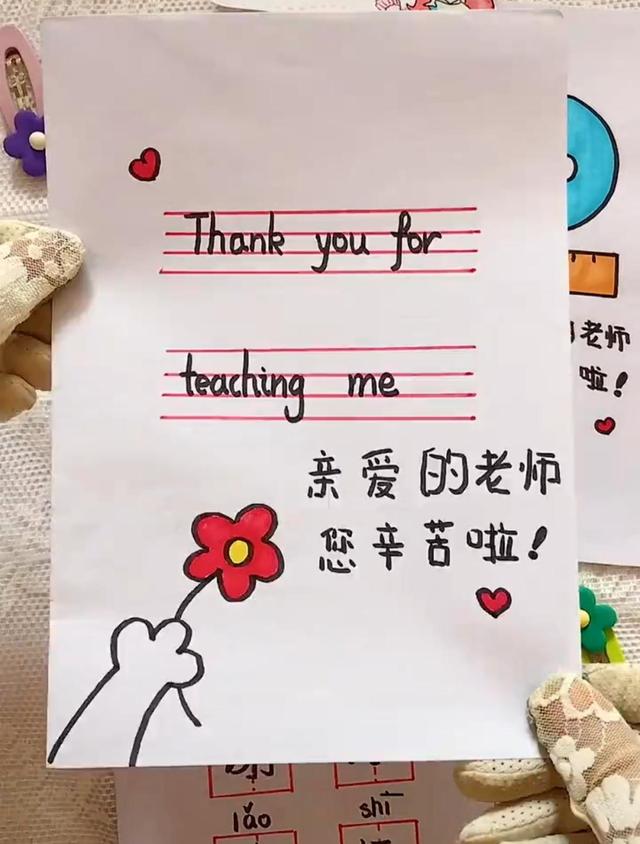 Thank you for
teaching me
亲爱的老师
您辛苦啦!
老师
啦!
lǎo
shī